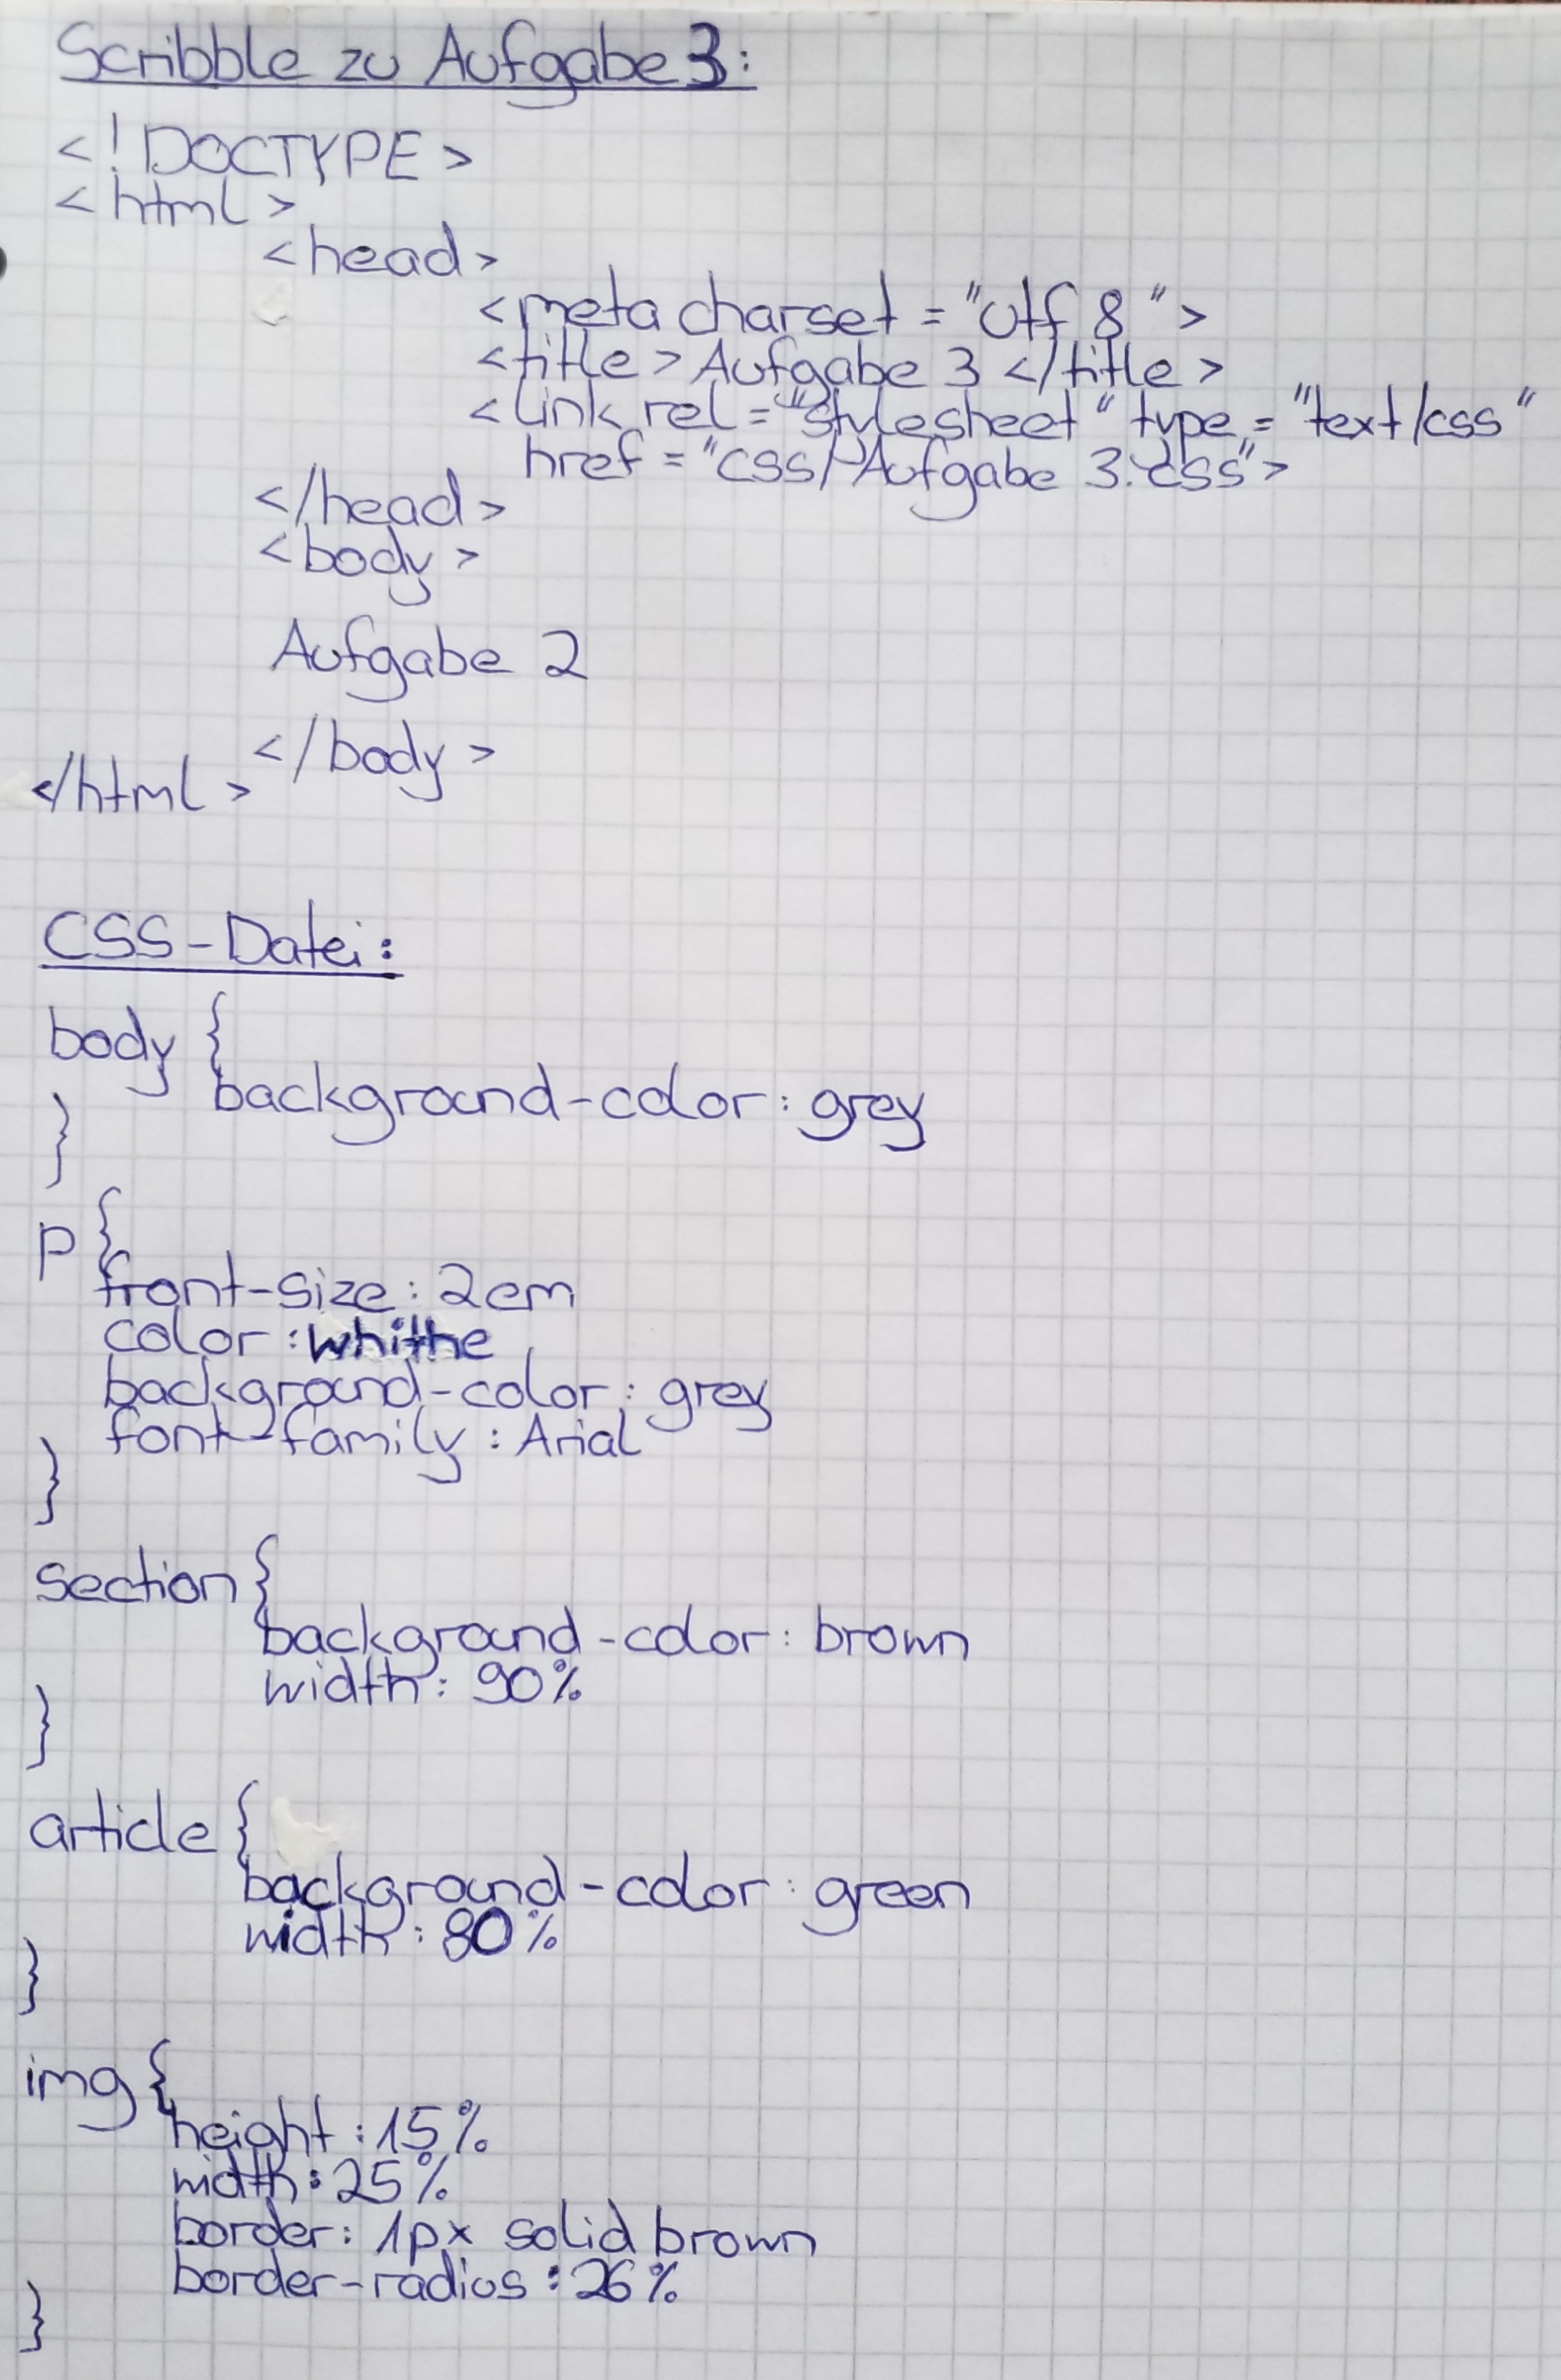 Scribble zu Aufgabe 3:
<!DOCTYPE>
<html>
<head>
<meta charset = "utf 8 ">
<title> Aufgabe 3 </title>
<link rel = "stylesheet" type = "text/css"
href = "css/Aufgabe 3.css">
</head>
<body>
Aufgabe 2
</body>
</html>
CSS-Datei:
body {
background-color: grey
}
p {
front-size: 2em
color: whithe
background-color: grey
font-family: Arial
}
section {
background-color: brown
width: 90%
}
article {
background-color: green
width: 80%
}
img {
height: 15%
width: 25%
border: 1px solid brown
border-radius: 26%
}